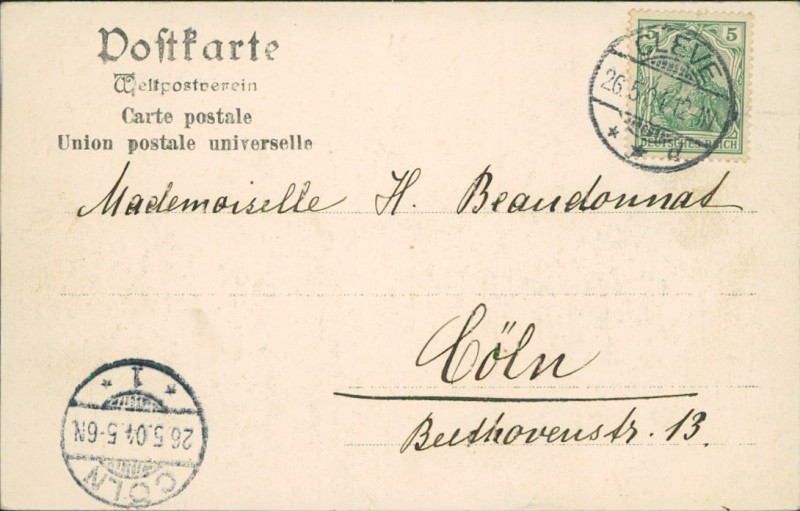 Postkarte
Weltpostverein
Carte postale
Union postale universelle
5 5
CLEVE
26.5.04. 12-1N
* * d
DEUTSCHES REICH
Mademoiselle H. Beaudonnat
Cöln
Beethovenstr. 13.
* 1 *
26.5.04. 5-6N
CÖLN